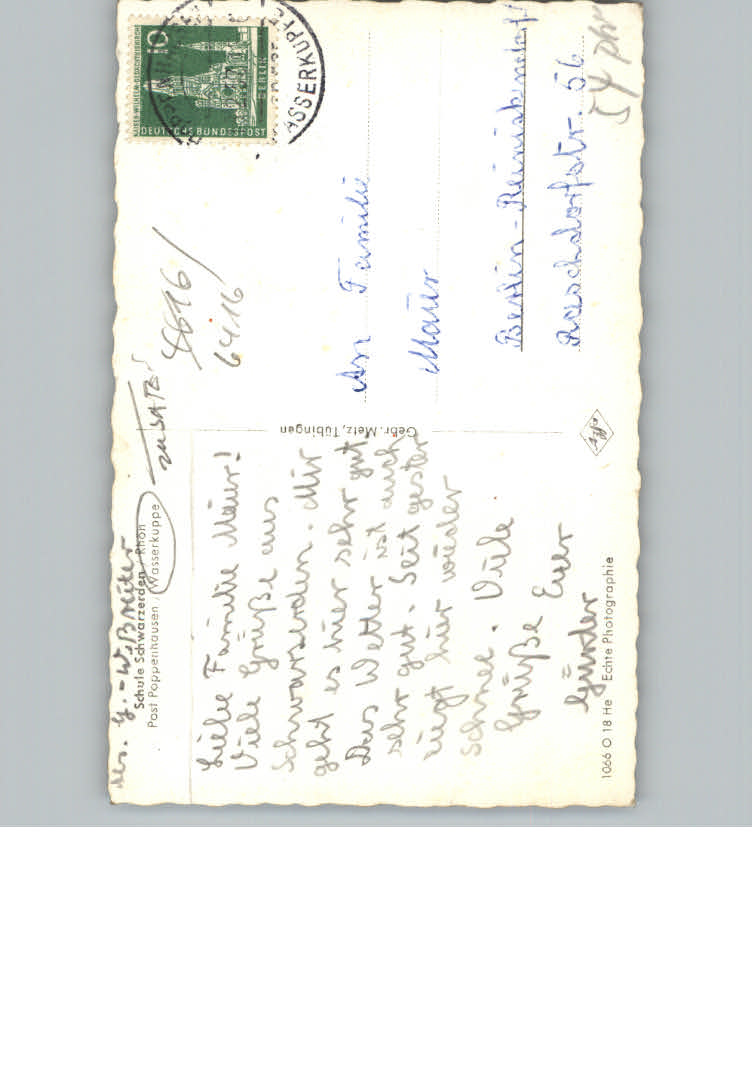 Abs. G.-W. Breiter
Schule Schwarzerden Rhön
Post Poppenhausen / Wasserkuppe
ZUSATZ
Liebe Familie Maier!
Viele Grüße aus
Schwarzerden. Mir
geht es hier sehr gut.
Das Wetter ist auch
sehr gut. Seit gester
liegt hier wieder
Schnee. Viele
Grüße Euer
Günter
1066 O 18 He Echte Photographie
Gebr. Metz, Tübingen
Agfa
10
KAISER-WILHELM-GEDÄCHTNISKIRCHE
BERLIN
DEUTSCHE BUNDESPOST
WASSERKUPPE
8616
6416
An Familie
Maier
Berlin-Reinickendorf
Raschdorfstr. 56
54